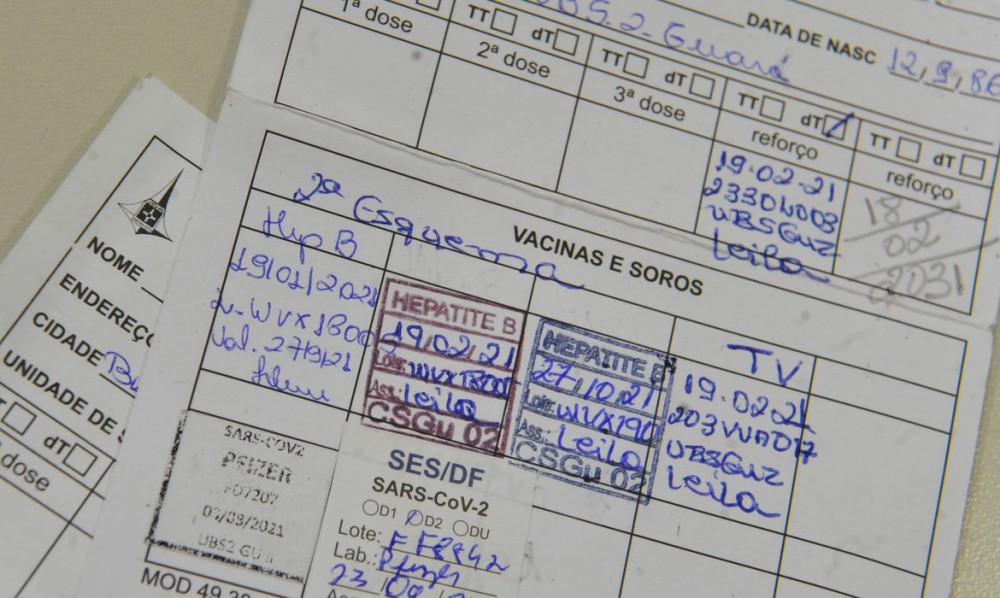 UBS.2-Guará
DATA DE NASC 12,9,86
TT dT TT dT TT dT TT dT
1ª dose 2ª dose 3ª dose reforço reforço
19.02.21
UBSGUZ
Leila
18/02/2031
2ª Esquema
VACINAS E SOROS
Hep B
19/01/2021
Val. 27/9/21
HEPATITE B
19,02,21
Lote:
Ass: Leila
CSGu 02
HEPATITE B
27,10,21
Lote: WVX190
Ass.: Leila
CSGu 02
TV
19.02.21
UBSGUZ
Leila
SARS-COV2
PFIZER
UBS2
SES/DF
SARS-CoV-2
D1 D2 DU
Lote:
Lab.: Pfizer
23
MOD 49
NOME
ENDEREÇO
CIDADE
UNIDADE DE
dT
dose